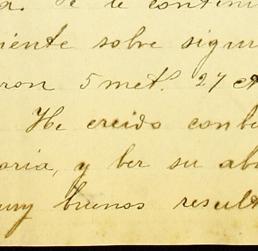 te contin
iente sobre sigur
ron 5 met. 27 ct
He creido conbe
oria, y ber su abo
uy buenos result